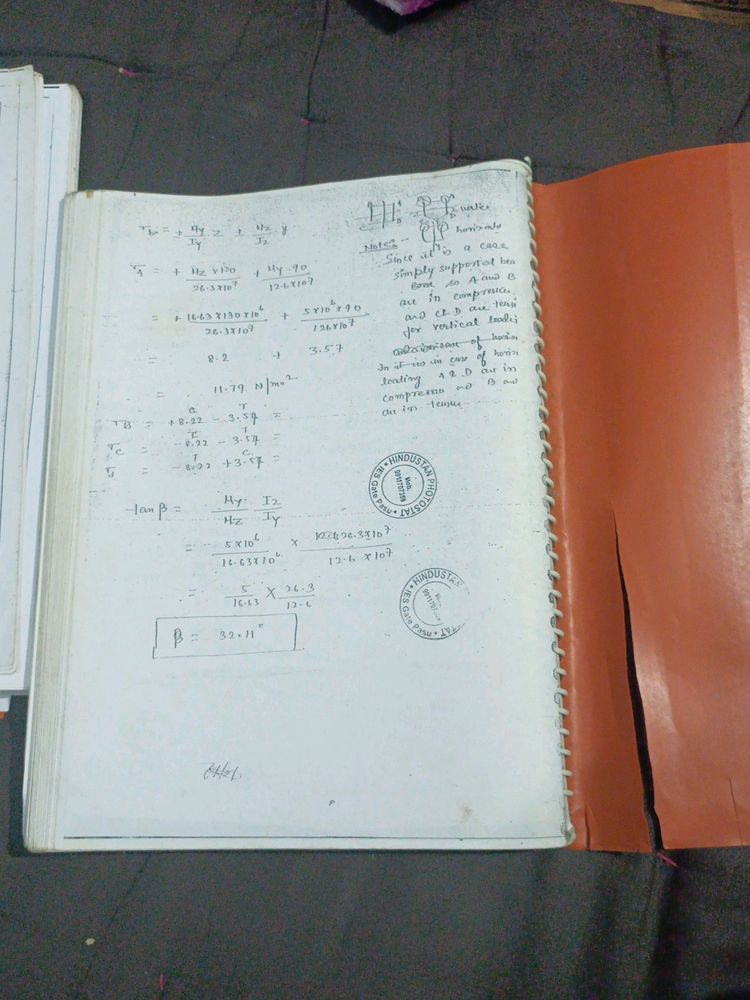 σ_b = + My/Iy z + Mz/Iz y
σ_A = + Mz×130/26.3×10⁷ + My·90/12.6×10⁷
= + 16.63×130×10⁶/26.3×10⁷ + 5×10⁶×90/126×10⁷
= 8.2 + 3.57
= 11.79 N/mm²
C T
σ_B = +8.22 - 3.57 =
T T
σ_C = -8.22 - 3.57 =
T C
σ_D = -8.22 + 3.57 =
tan β = My/Mz · Iz/Iy
= 5×10⁶/16.63×10⁶ × 26.3×10⁷/12.6×10⁷
= 5/16.63 × 26.3/12.6
β = 32.11°
horizonta
Notes -
Since it is a case
simply supported bea
so A and B
are in compression
and C & D are tensi
for vertical loadi
it is in case of horizon
loading A & D are in
compression and B and
are in tension
HINDUSTAN PHOTOSTAT
IES Gate Pasu
Mob.
9911707359
HINDUSTAN
TAT
IES Gate Pasu
Mob.